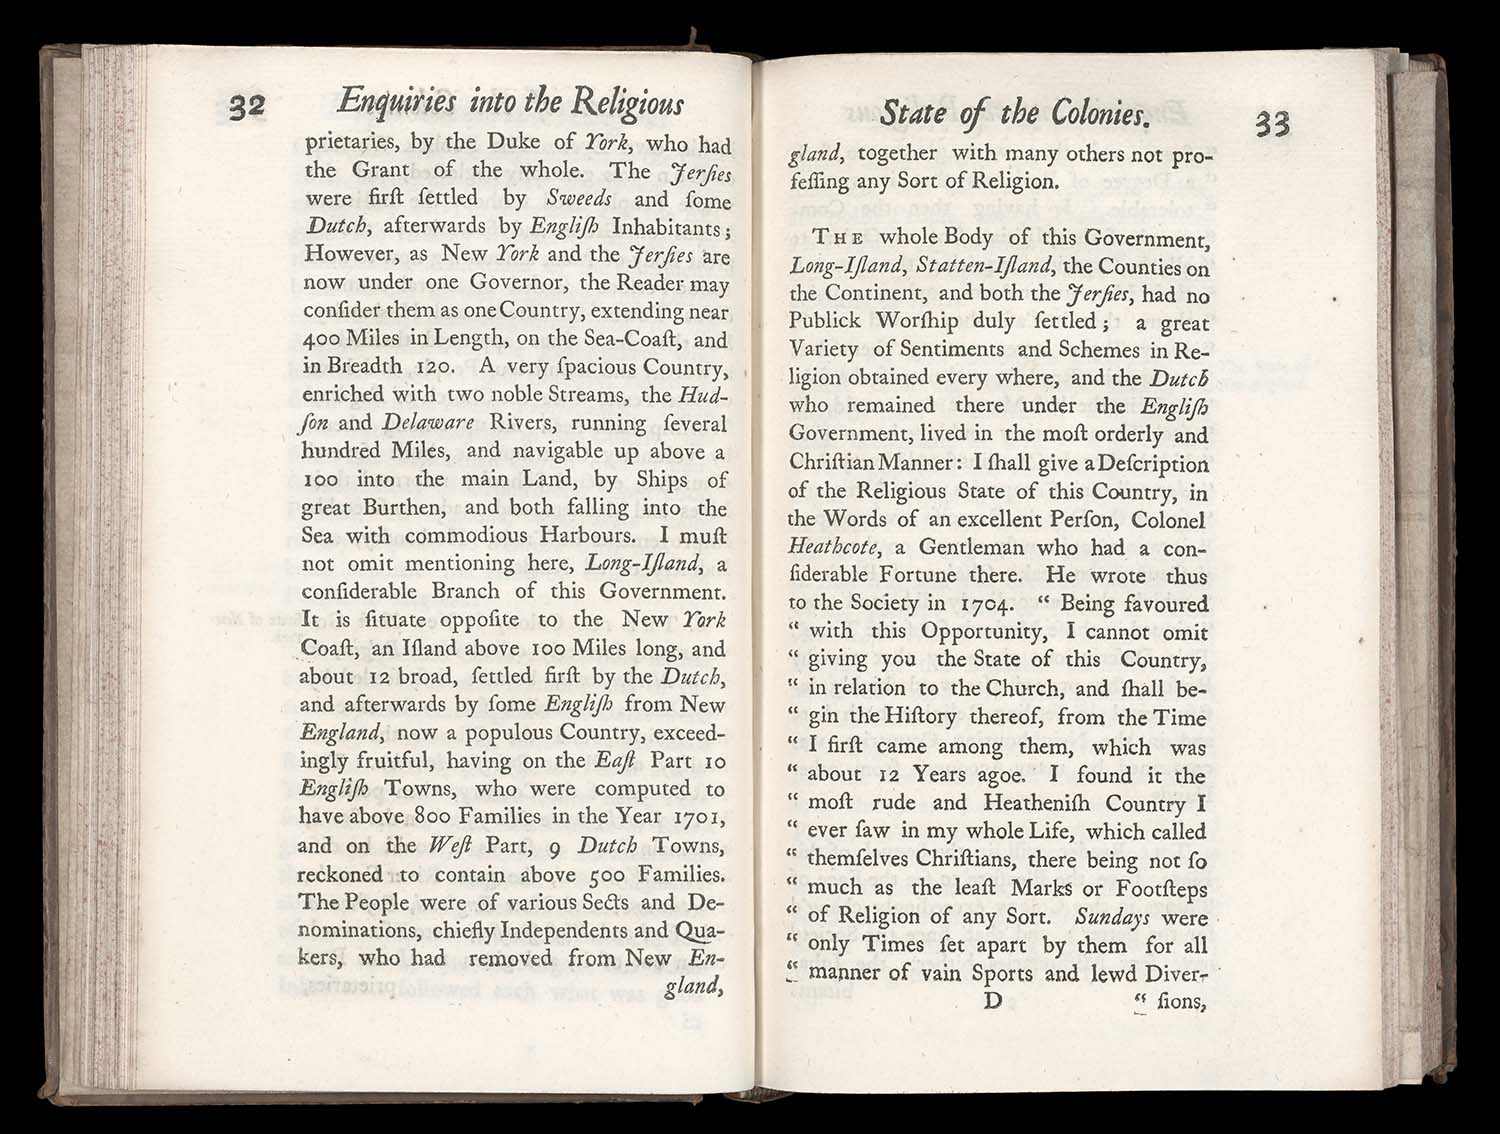 32
Enquiries into the Religious
prietaries, by the Duke of York, who had
the Grant of the whole. The Jerſies
were firſt ſettled by Sweeds and ſome
Dutch, afterwards by Engliſh Inhabitants;
However, as New York and the Jerſies are
now under one Governor, the Reader may
conſider them as one Country, extending near
400 Miles in Length, on the Sea-Coaſt, and
in Breadth 120. A very ſpacious Country,
enriched with two noble Streams, the Hud-
ſon and Delaware Rivers, running ſeveral
hundred Miles, and navigable up above a
100 into the main Land, by Ships of
great Burthen, and both falling into the
Sea with commodious Harbours. I muſt
not omit mentioning here, Long-Iſland, a
conſiderable Branch of this Government.
It is ſituate oppoſite to the New York
Coaſt, an Iſland above 100 Miles long, and
about 12 broad, ſettled firſt by the Dutch,
and afterwards by ſome Engliſh from New
England, now a populous Country, exceed-
ingly fruitful, having on the Eaſt Part 10
Engliſh Towns, who were computed to
have above 800 Families in the Year 1701,
and on the Weſt Part, 9 Dutch Towns,
reckoned to contain above 500 Families.
The People were of various Sects and De-
nominations, chiefly Independents and Qua-
kers, who had removed from New En-
gland,
State of the Colonies.
33
gland, together with many others not pro-
feſſing any Sort of Religion.
THE whole Body of this Government,
Long-Iſland, Statten-Iſland, the Counties on
the Continent, and both the Jerſies, had no
Publick Worſhip duly ſettled; a great
Variety of Sentiments and Schemes in Re-
ligion obtained every where, and the Dutch
who remained there under the Engliſh
Government, lived in the moſt orderly and
Chriſtian Manner: I ſhall give a Deſcription
of the Religious State of this Country, in
the Words of an excellent Perſon, Colonel
Heathcote, a Gentleman who had a con-
ſiderable Fortune there. He wrote thus
to the Society in 1704. “ Being favoured
“ with this Opportunity, I cannot omit
“ giving you the State of this Country,
“ in relation to the Church, and ſhall be-
“ gin the Hiſtory thereof, from the Time
“ I firſt came among them, which was
“ about 12 Years agoe. I found it the
“ moſt rude and Heatheniſh Country I
“ ever ſaw in my whole Life, which called
“ themſelves Chriſtians, there being not ſo
“ much as the leaſt Marks or Footſteps
“ of Religion of any Sort. Sundays were
“ only Times ſet apart by them for all
“ manner of vain Sports and lewd Diver-
D “ ſions,